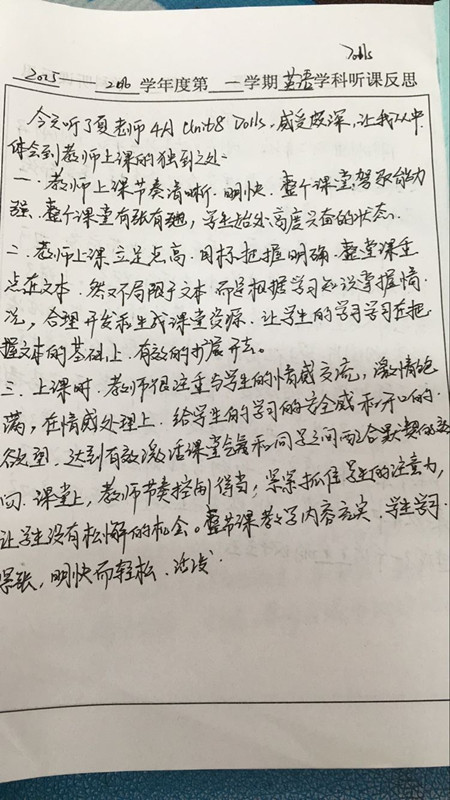 Dolls
2015——2016学年度第一学期英语学科听课反思
今天听了夏老师4A Unit8 Dolls,感受极深,让我从中
体会到教师上课的独到之处.
一.教师上课节奏清晰.明快.整个课堂驾驭能力
强.整个课堂有张有弛,学生始处高度兴奋的状态.
二.教师上课立足点高.目标把握明确.整堂课重
点在文本.然又不局限于文本.而是根据学习知识掌握情
况,合理开发和生成课堂资源.让学生的学习学习在把
握文本的基础上.有效的扩展开去。
三.上课时.教师很注重与学生的情感交流,激情饱
满,在情感处理上.给学生的学习的安全感和开口的
欲望.达到有效激活课堂和同学之间配合默契的
问.课堂上,教师节奏控制得当,紧紧抓住学生的注意力,
让学生没有松懈的机会。整节课教学内容充实.学生学习
紧张,明快而轻松.活泼.